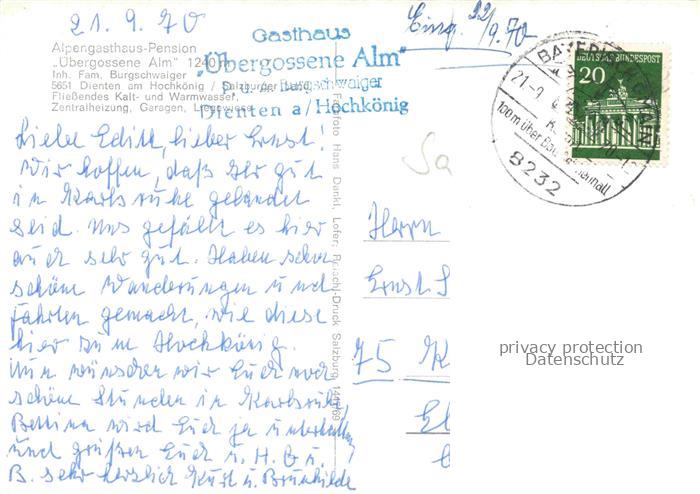 21.9.70
Eing. 22/9.70
Alpengasthaus-Pension
„Übergossene Alm" 1240 m
Inh. Fam. Burgschwaiger
5651 Dienten am Hochkönig / Salzburger Land
Fließendes Kalt- und Warmwasser,
Zentralheizung, Garagen, Liegewiese
Gasthaus
„Übergossene Alm"
Burgschwaiger
Dienten a/Hochkönig
BAYERISCH GMAIN
21.-9.
100m über Bad Reichenhall
8232
DEUTSCHE BUNDESPOST
20
Liebe Edith, lieber Ernst!
Wir hoffen, daß Ihr gut
in Karlsruhe gelandet
seid. Uns gefällt es hier
auch sehr gut. Haben schon
schöne Wanderungen und
Fahrten gemacht, wie diese
hier zum Hochkönig.
Nun wünschen wir Euch noch
schöne Stunden in Karlsruhe
Bettina wird Euch ja unterhalten
und grüßen Euch u. H. G u.
B. sehr herzlich Kurt u. Brunhilde
Foto Hans Dankl, Lofer; Druck Salzburg
Herrn
Ernst S
75 K
privacy protection
Datenschutz